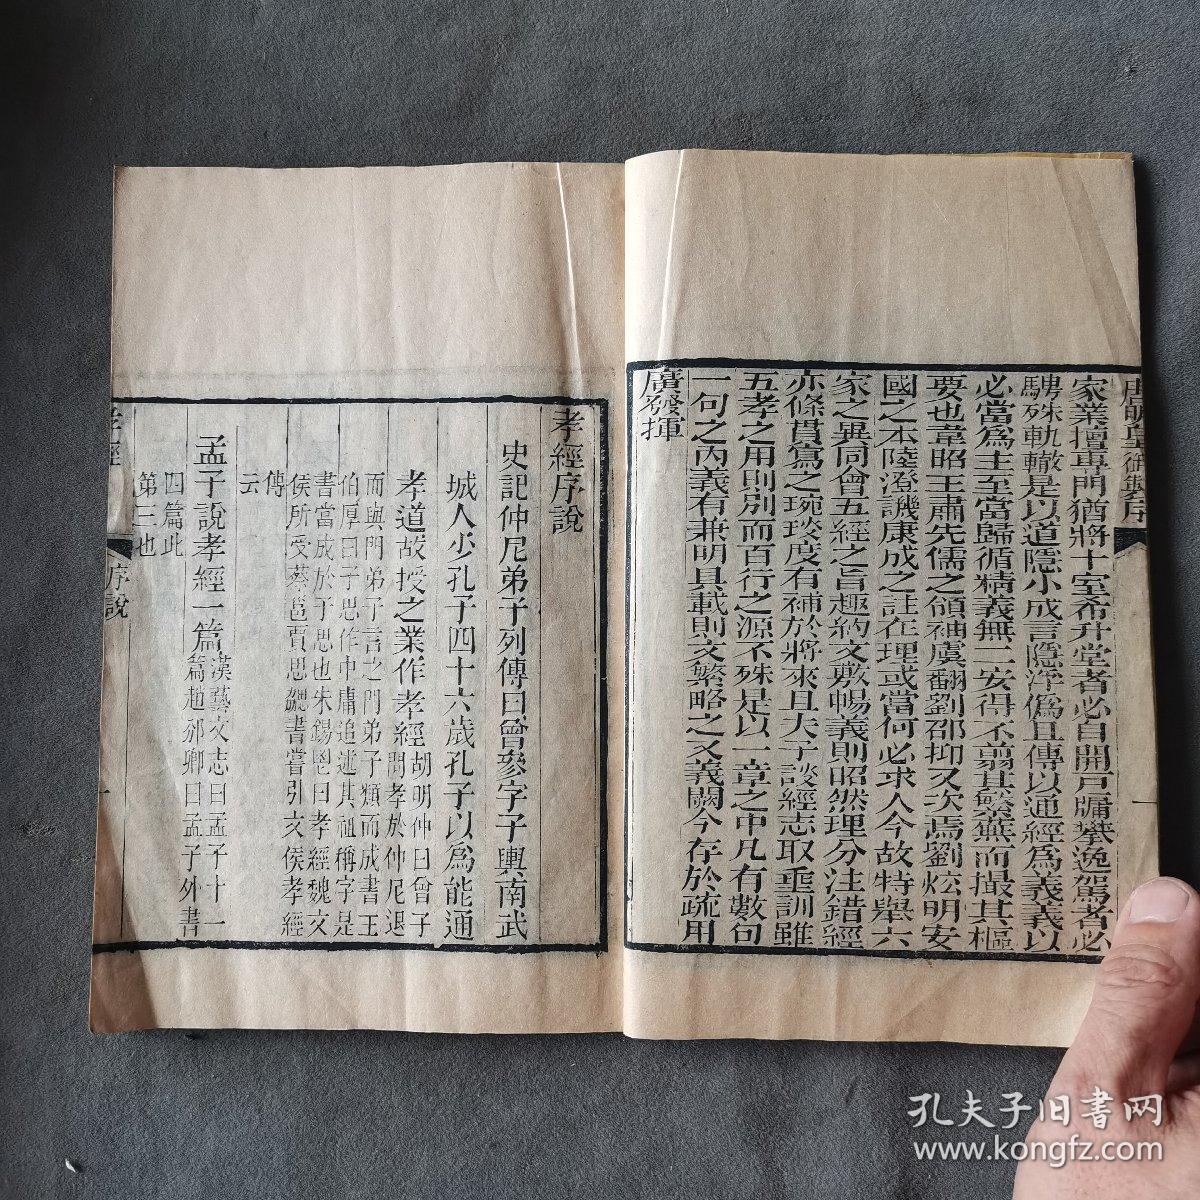 唐明皇御製序
家業擅專門猶將十室希升堂者必自開戸牖攀逸駕者必
騁殊軌轍是以道隱小成言隱浮僞且傳以通經爲義義以
必當爲主至當歸循精義無二安得不翦其繁蕪而撮其樞
要也韋昭王肅先儒之領袖虞翻劉邵抑又次焉劉炫明安
國之本陸澄譏康成之註在理或當何必求人今故特舉六
家之異同會五經之旨趣約文敷暢義則昭然理分注錯經
亦條貫寫之琬琰庶有補於將來且夫子談經志取垂訓雖
五孝之用則別而百行之源不殊是以一章之中凡有數句
一句之內義有兼明具載則文繁略之又義闕今存於疏用
廣發揮
孝經序說
史記仲尼弟子列傳曰曾參字子輿南武
城人少孔子四十六歲孔子以爲能通
孝道故授之業作孝經
胡明仲曰曾子
問孝於仲尼退
而與門弟子言之門弟子類而成書王
伯厚曰子思作中庸追述其祖稱字是
書當成於子思也朱錫鬯曰孝經魏文
侯所受蔡邕賈思勰書嘗引文侯孝經
傳
云
孟子說孝經一篇
漢藝文志曰孟子十一
篇趙邠卿曰孟子外書
四篇此
第三也
孝經
序說
一
孔夫子旧书网
www.kongfz.com